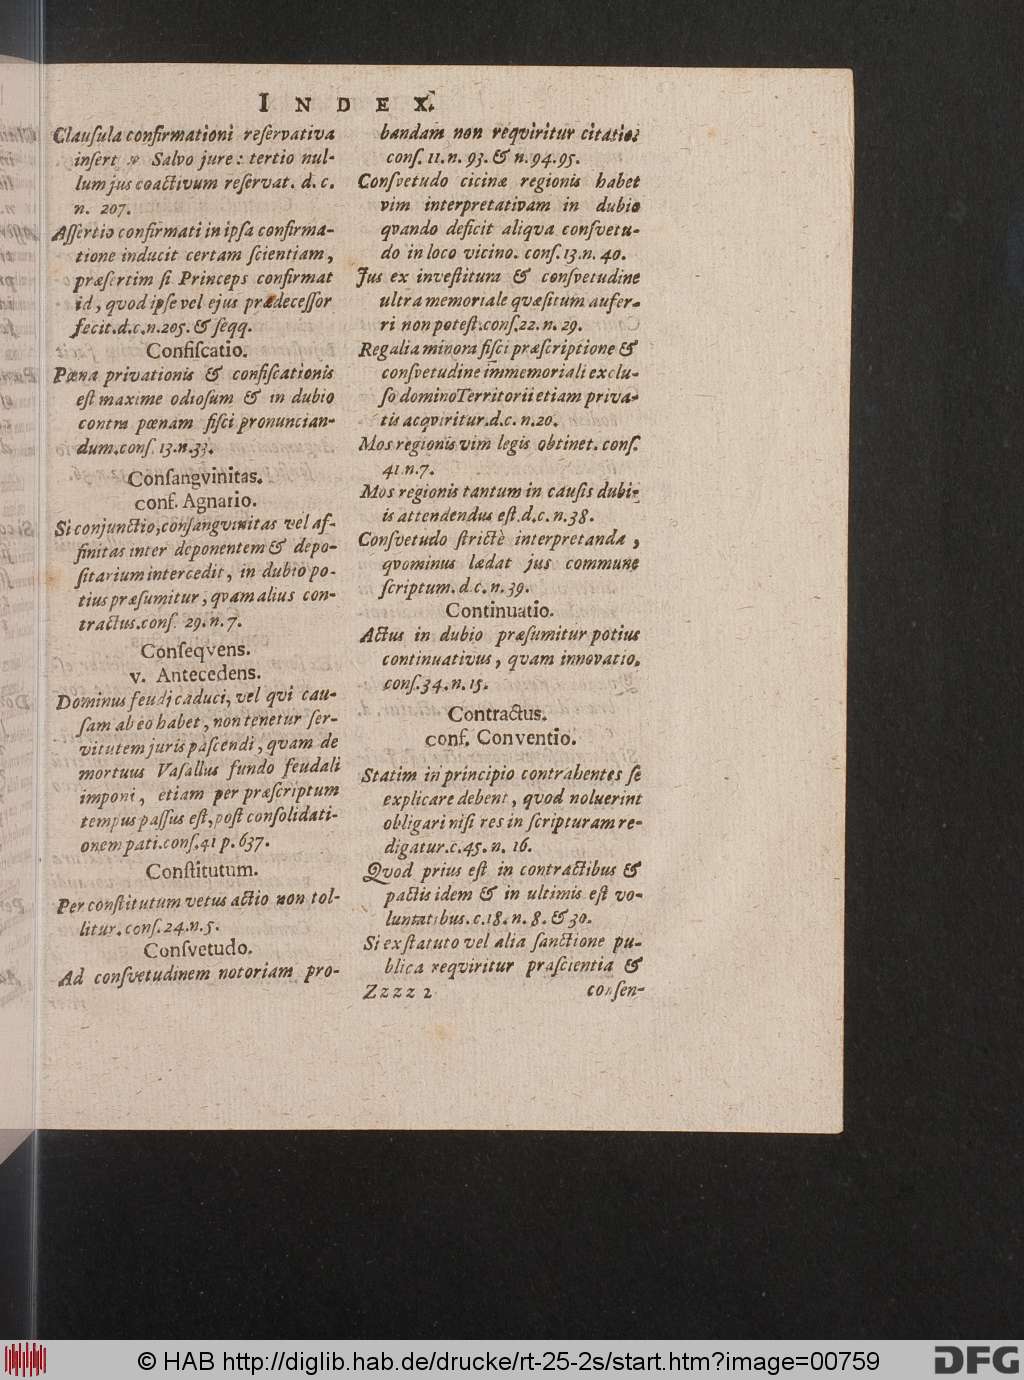 INDEX.
Clauſula confirmationi reſervativa
inſert Salvo jure: tertio nul-
lum jus coactivum reſervat. d. c.
n. 207.
Aſſertio confirmati in ipſa confirma-
tione inducit certam ſcientiam,
præſertim ſi Princeps confirmat
id, quod ipſe vel ejus prædeceſſor
fecit.d.c.n.205. & ſeqq.
Confiſcatio.
Pœna privationis & confiſcationis
eſt maxime odioſum & in dubio
contra pœnam fiſci pronuncian-
dum.conſ. 13.n.33.
Conſangvinitas.
conf. Agnatio.
Si conjunctio,conſangvinitas vel af-
finitas inter deponentem & depo-
ſitarium intercedit, in dubio po-
tius præſumitur, qvam alius con-
tractus.conſ. 29.n.7.
Conſeqvens.
v. Antecedens.
Dominus feudi caduci, vel qvi cau-
ſam ab eo habet, non tenetur ſer-
vitutem juris paſcendi, qvam de
mortuus Vaſallus fundo feudali
imponi, etiam per præſcriptum
tempus paſſus eſt, poſt conſolidati-
onem pati.conſ.41 p.637.
Conſtitutum.
Per conſtitutum vetus actio non tol-
litur.conſ.24.n.5.
Conſvetudo.
Ad conſvetudinem notoriam pro-
bandam non reqviritur citatio:
conſ. 11.n. 93. & n. 94.95.
Conſvetudo cicinæ regionis habet
vim interpretativam in dubio
qvando deficit aliqva conſvetu-
do in loco vicino. conſ.13.n. 40.
Jus ex inveſtitura & conſvetudine
ultra memoriale qvæſitum aufer-
ri non poteſt.conſ.22.n. 29.
Regalia minora fiſci præſcriptione &
conſvetudine immemoriali exclu-
ſo domino Territorii etiam priva-
tis acqviritur.d.c. n.20.
Mos regionis vim legis obtinet. conſ.
41 n.7.
Mos regionis tantum in cauſis dubi-
is attendendus eſt.d.c.n.38.
Conſvetudo ſtrictè interpretanda,
qvominus lædat jus commune
ſcriptum.d c.n.39.
Continuatio.
Actus in dubio præſumitur potius
continuativus, qvam innovatio.
conſ.34.n.15.
Contractus.
conf. Conventio.
Statim in principio contrahentes ſe
explicare debent, qvod noluerint
obligari niſi res in ſcripturam re-
digatur.c.45.n. 16.
Qvod prius eſt in contractibus &
pactis idem & in ultimis eſt vo-
luntatibus.c.18.n.8.&30.
Si ex ſtatuto vel alia ſanctione pu-
blica reqviritur præſcientia &
Zzzz 2 conſen-
© HAB http://diglib.hab.de/drucke/rt-25-2s/start.htm?image=00759
DFG